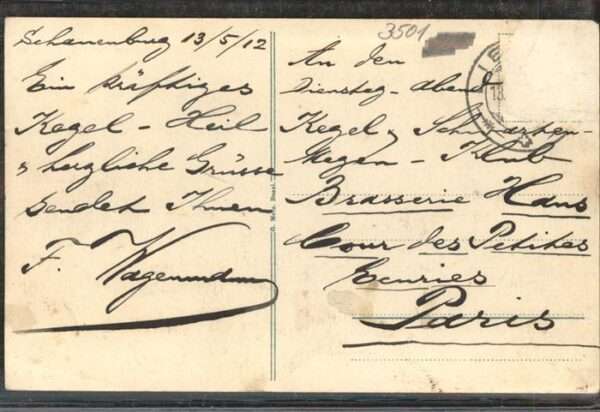 Schauenburg 13/5/12
Ein kräftiges
Kegel - Heil
& herzliche Grüsse
sendet Ihnen
F. Wagenmann
3501
An den
Dienstag-abend
Kegel & Schwarzen-
Magen - Klub
Brasserie Hans
Cour des Petites
Ecuries
Paris